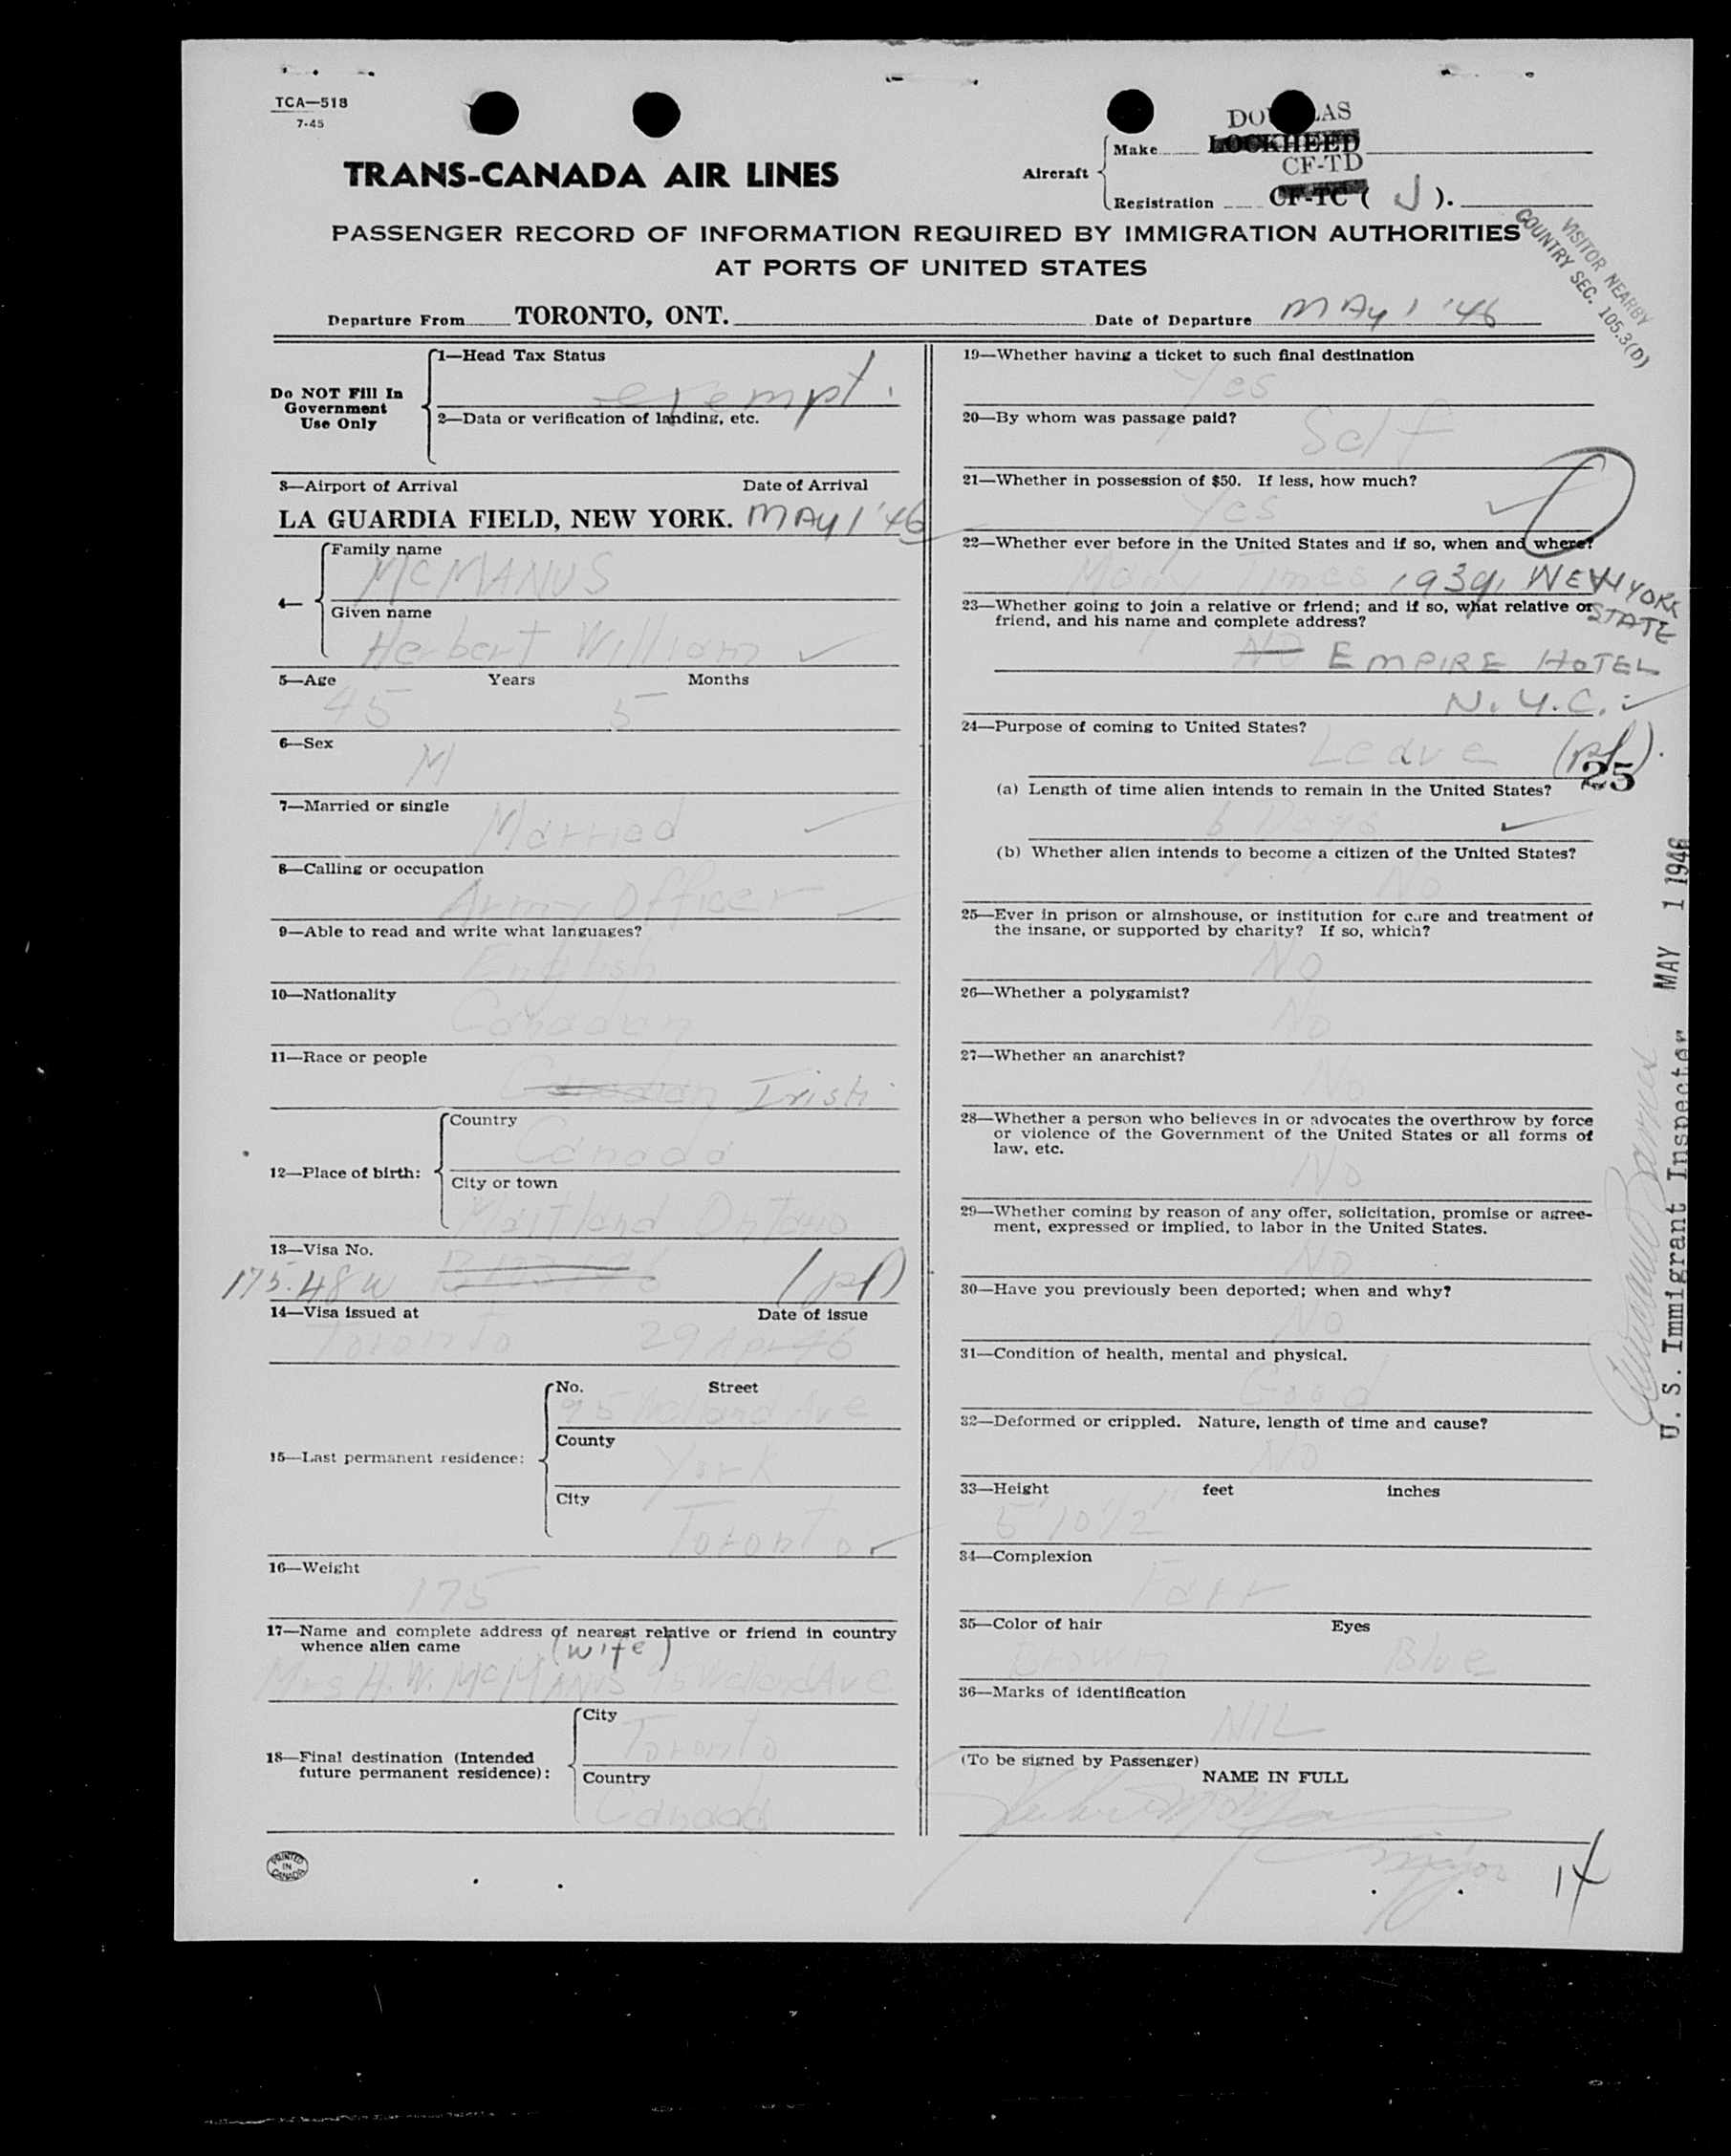 TCA—518
7-45
DOUGLAS
Make LOCKHEED
CF-TD
Aircraft
Registration CF-TC ( J ).
TRANS-CANADA AIR LINES
PASSENGER RECORD OF INFORMATION REQUIRED BY IMMIGRATION AUTHORITIES
AT PORTS OF UNITED STATES
VISITOR NEARBY
COUNTRY SEC. 105.3(D)
Departure From TORONTO, ONT. Date of Departure MAY 1 '46
Do NOT Fill In
Government
Use Only
1—Head Tax Status
exempt.
2—Data or verification of landing, etc.
3—Airport of Arrival Date of Arrival
LA GUARDIA FIELD, NEW YORK. MAY 1 '46
4—
Family name
MCMANUS
Given name
Herbert William
5—Age Years Months
45 5
6—Sex
M
7—Married or single
Married
8—Calling or occupation
Army Officer
9—Able to read and write what languages?
English
10—Nationality
Canadian
11—Race or people
Canadian Irish
12—Place of birth:
Country
Canada
City or town
Maitland Ontario
13—Visa No.
175.48 W (pf)
14—Visa issued at Date of issue
Toronto 29 Apr 46
15—Last permanent residence:
No. Street
95 Welland Ave
County
York
City
Toronto
16—Weight
175
17—Name and complete address of nearest relative or friend in country
whence alien came (wife)
Mrs H. W. McMANUS 95 Welland Ave
18—Final destination (Intended
future permanent residence):
City
Toronto
Country
Canada
PRINTED
IN
CANADA
19—Whether having a ticket to such final destination
Yes
20—By whom was passage paid?
Self
21—Whether in possession of $50. If less, how much?
Yes
22—Whether ever before in the United States and if so, when and where?
Many Times 1939, NEW YORK
STATE
23—Whether going to join a relative or friend; and if so, what relative or
friend, and his name and complete address?
NO EMPIRE HOTEL
N.Y.C.
24—Purpose of coming to United States?
Leave (pf).
25
(a) Length of time alien intends to remain in the United States?
6 Days
(b) Whether alien intends to become a citizen of the United States?
No
25—Ever in prison or almshouse, or institution for care and treatment of
the insane, or supported by charity? If so, which?
No
26—Whether a polygamist?
No
27—Whether an anarchist?
No
28—Whether a person who believes in or advocates the overthrow by force
or violence of the Government of the United States or all forms of
law, etc.
No
29—Whether coming by reason of any offer, solicitation, promise or agree-
ment, expressed or implied, to labor in the United States.
No
30—Have you previously been deported; when and why?
No
31—Condition of health, mental and physical.
Good
32—Deformed or crippled. Nature, length of time and cause?
No
33—Height feet inches
5' 10 1/2"
34—Complexion
Fair
35—Color of hair Eyes
Brown Blue
36—Marks of identification
NIL
(To be signed by Passenger)
NAME IN FULL
Major
14
U. S. Immigrant Inspector MAY 1 1946